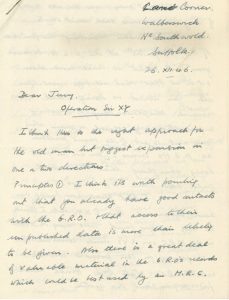 Corner
Walberswick
Nr Southwold
Suffolk
26. XII. 46.
Dear Jerry,
Operation Sir
I think this is the right approach for
the old man but suggest expansion in
one or two directions.
Principles ① I think it's worth pointing
out that you already have good contacts
with the G.R.O. that access to their
unpublished data is more than likely
to be given. Also there is a great deal
of valuable material in the G.R.O's records
which could be best used by an M.R.C.